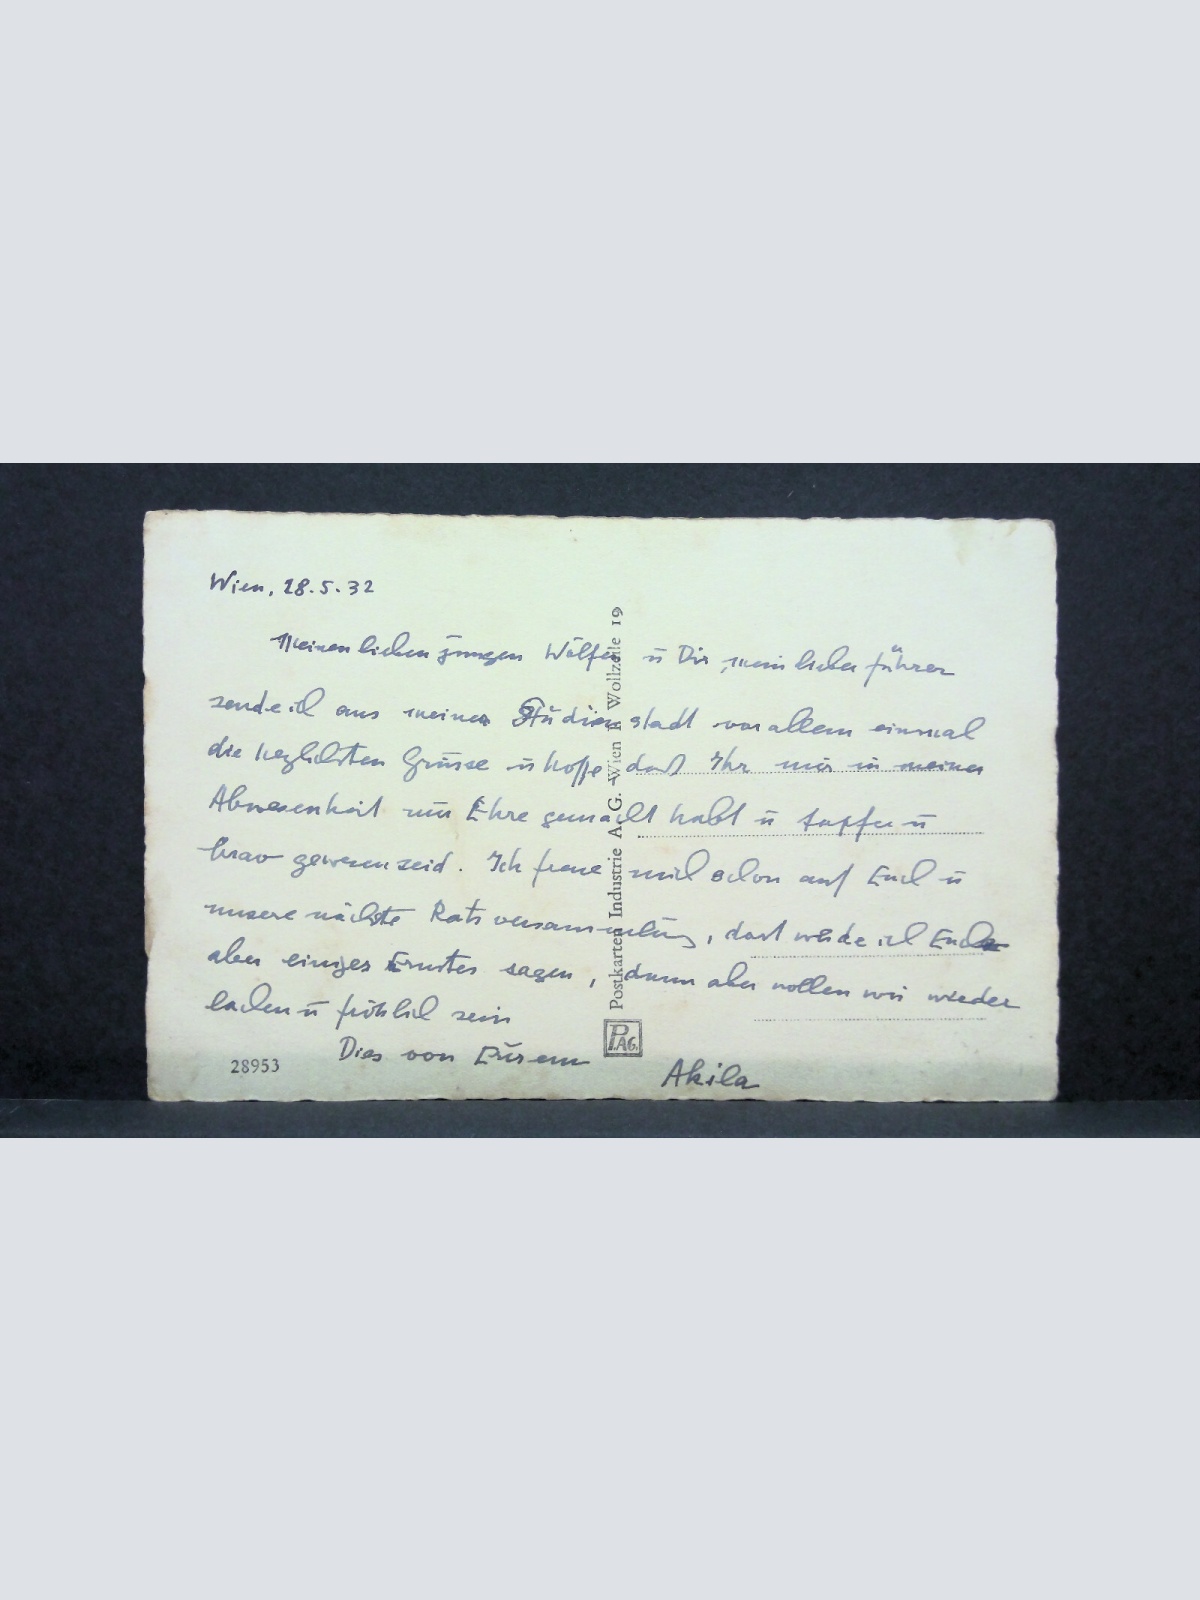 Wien, 28.5.32
Meinen lieben jungen Wölfen u Dir, mein lieber führer
sende ich aus meiner Studienstadt vor allem einmal
die herzlichsten Grüsse u hoffe, daß Ihr mir in meiner
Abwesenheit nur Ehre gemacht habt u tapfer u
brav gewesen seid. Ich freue mich schon auf Euch u
unsere nächste Ratsversammlung, dort werde ich Euch
aber einiges Ernstes sagen, dann aber wollen wir wieder
lachen u fröhlich sein
Dies von Eurem
Akila
28953
Postkarten Industrie A. G. Wien I. Wollzeile 19
P.AG.